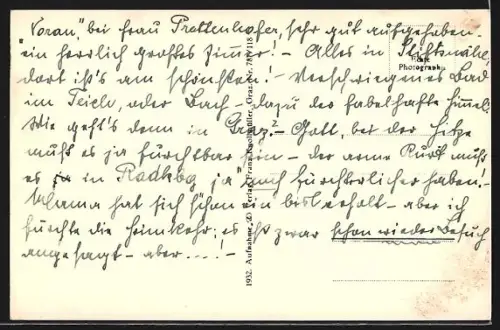 Vorau", bei Frau Prettenhofer, sehr gut aufgehoben.
"ein herrlich großes Zimmer! – Alles in Stiftsnähe,
dort ist's am schönsten! – Verschwiegenes Bad
im Teich, oder Bach – dazu der fabelhafte Himmel.
Wie geht's denn in Graz? – Gott, bei der Hitze
muß es ja furchtbar sein – der arme Rudi muß
es ja in Radkbg ja auch fürchterlicher haben! –
Mama hat sich schon ein bisl erholt – aber ich
fürchte die Heimkehr; es ist zwar schon wieder Besuch
angesagt – aber ....! –
Photographie
1932. Aufnahme u. Verlag Franz Knollmüller, Graz. Nr.